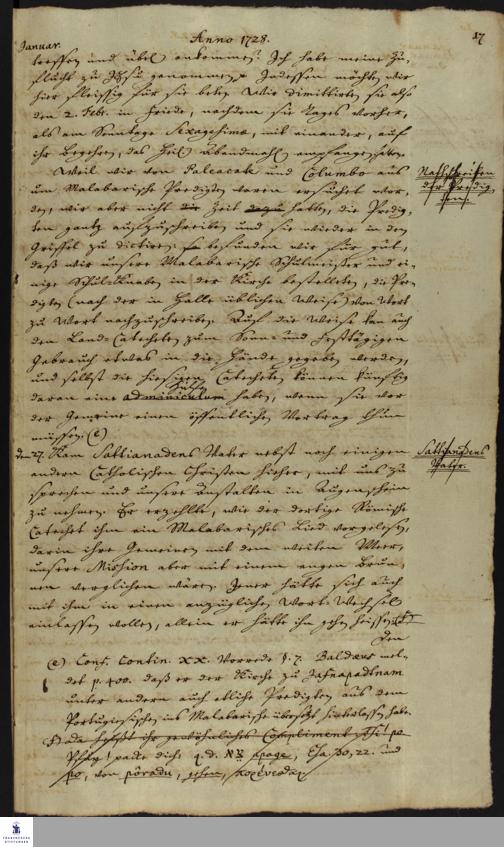 Januar.
Anno 1728.
17
treffen und übel ankommen? Ich habe meine Zu-
flucht zu JEsu genommen, Indessen möchten wir
hier fleissig für sie beten. Wir dimittirten sie also
den 2. Febr. in Friede, nachdem sie Tages vorher,
als am Sonntage Sexagesimæ, mit einander, auf
ihr Begehren, das Heil. Abendmahl empfangen hatten.
Weil wir von Paleacate und Columbo aus
um Malabarische Predigten waren ersuchet wor-
den, wir aber nicht die Zeit dazu hatten, die Predig-
ten gantz aufzuschreiben und sie wieder in den
Griffel zu dictiren: so befunden wir für gut,
daß wir unsere Malabarische Schulmeister und ei-
nige Schul-Knaben in der Kirche bestelleten, die Pre-
digten (nach der in Halle üblichen Weise) von Wort
zu Wort nachzuschreiben. Auf die Weise kan auch
den Land-Catecheten zum Sonn- und Festtägigen
Gebrauch etwas in die Hände gegeben werden,
und selbst die hiesigen Catecheten können künftig
daran eine haben, wenn sie vor
der Gemeine einen öffentlichen Vortrag thun
müssen. (e)
Nachschreiben
der Predig-
ten.
den 27. Kam Sattianadens Vater nebst noch einigen
andern Catholischen Christen hieher, mit uns zu
sprechen und unsere Anstalten in Augenschein
zu nehmen. Er erzehlte, wie der dortige Römische
Catechet ihm ein Malabarisches Lied vorgelesen,
darin ihre Gemeinen mit dem weiten Meer,
unsere Mission aber mit einem engen Brun-
nen verglichen wären. Jener hätte sich auch
mit ihm in einen anzüglichen Wort-Wechsel
einlassen wollen, allein er hätte ihn gehen heissen. (f)
Sattianadens
Vater.
den
(e) Conf. Contin. XX. Vorrede §. 7. Baldæus mel-
det p. 400. daß er der Kirche zu Jafnapatnam
unter andern auch etliche Predigten aus dem
Portugiesischen ins Malabarische übersetzt hinterlassen habe.
(f) da ihr gewöhnliches Compliment
packe dich, q. d. apage, Esa. 30, 22. und
po, von pôradu, gehen,